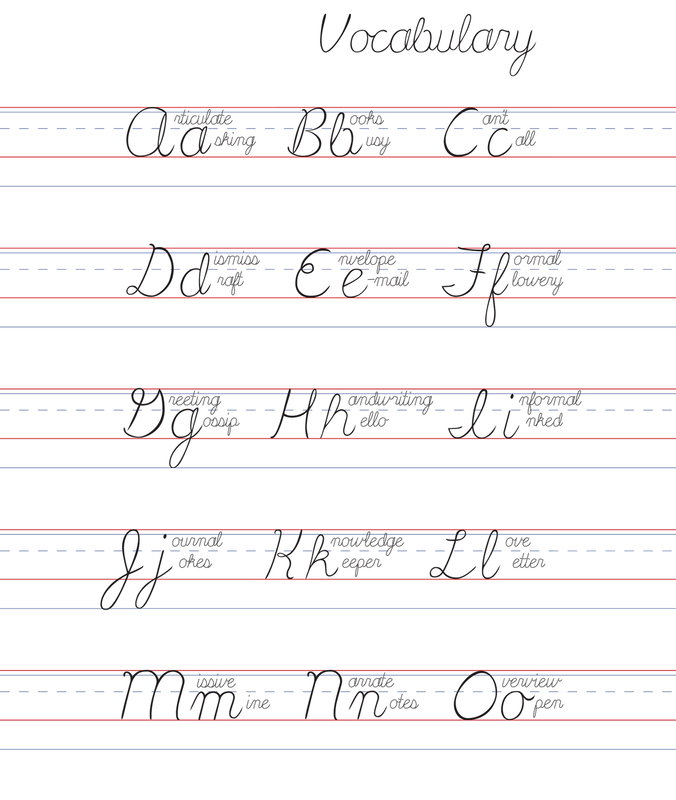 Vocabulary
Aa rticulate Bb ooks Cc an't
sking usy all
Dd ismiss Ee nvelope Ff ormal
raft -mail lowery
Gg reeting Hh andwriting Ii nformal
ossip ello nked
Jj ournal Kk nowledge Ll ove
okes eeper etter
Mm issive Nn arrate Oo verview
ine otes pen